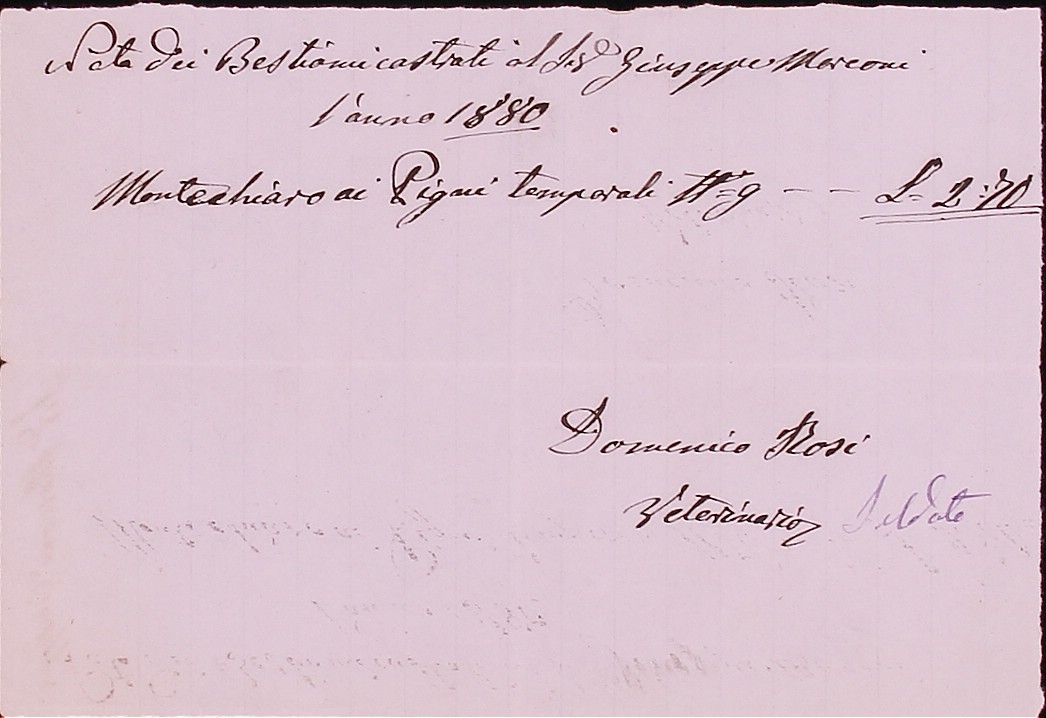 Nota dei Bestiami castrati al Sigr Giuseppe Marconi
l'anno 1880
Montechiaro ai Pigni temporali N.º 9 - - - L. 2:70
Domenico Rosi
Veterinario Saldato